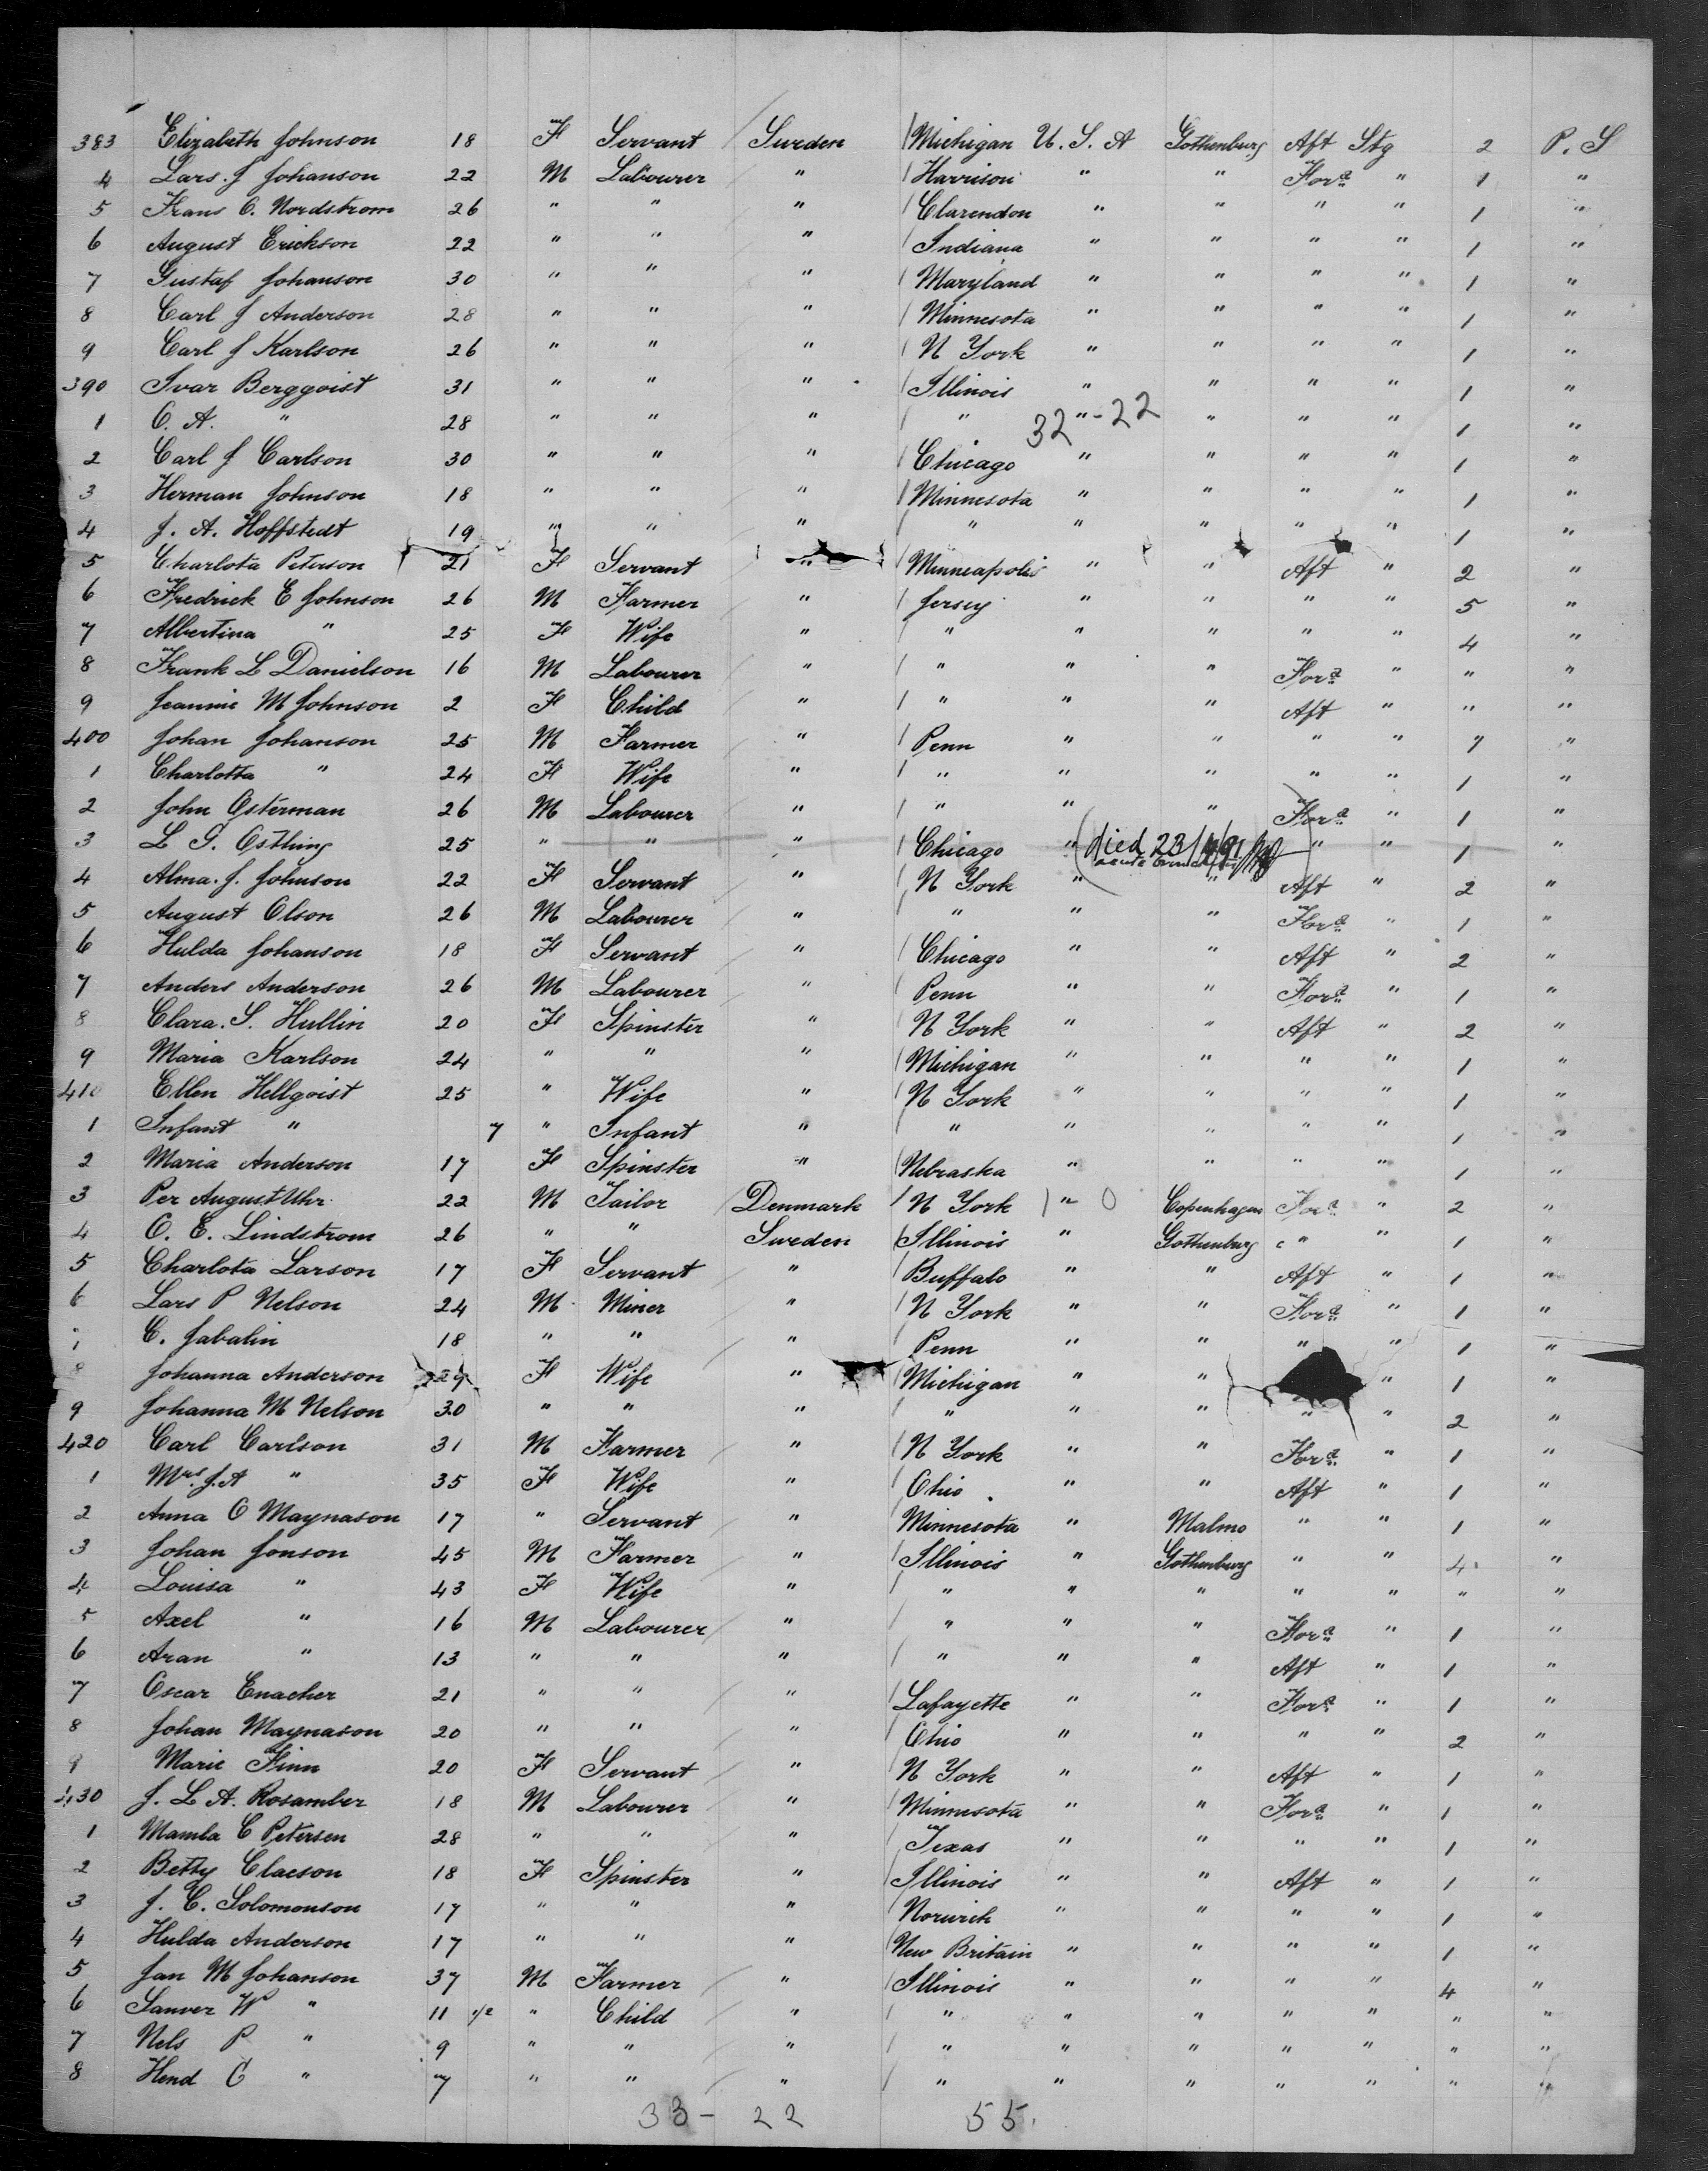 383 Elizabeth Johnson 18 F Servant Sweden Michigan U. S. A Gothenburg Aft Stg 2 P. S
4 Lars. J Johanson 22 M Labourer " Harrison " " For^d " 1 "
5 Frans O. Nordstrom 26 " " " Clarendon " " " " 1 "
6 August Erickson 22 " " " Indiana " " " " 1 "
7 Gustaf Johanson 30 " " " Maryland " " " " 1 "
8 Carl J Anderson 28 " " " Minnesota " " " " 1 "
9 Carl J Karlson 26 " " " N York " " " " 1 "
390 Ivar Bergqoist 31 " " " Illinois " " " " 1 "
1 O. A. " 28 " " " " 32 " - 22 " " " 1 "
2 Carl J Carlson 30 " " " Chicago " " " " 1 "
3 Herman Johnson 18 " " " Minnesota " " " " 1 "
4 J. A. Hoffstedt 19 " " " " " " " " 1 "
5 Charlota Peterson 21 F Servant " Minneapolis " " Aft " 2 "
6 Fredrick E Johnson 26 M Farmer " Jersey " " " " 5 "
7 Albertina " 25 F Wife " " " " " " 4 "
8 Frank L Danielson 16 M Labourer " " " " For^d " " "
9 Jeannie M Johnson 2 F Child " " " " Aft " " "
400 Johan Johanson 25 M Farmer " Penn " " " " 7 "
1 Charlotta " 24 F Wife " " " " " " 1 "
2 John Osterman 26 M Labourer " " " " For^d " 1 "
3 L G. Osthing 25 " " " Chicago " (died 23/4/91 " " 1 "
acute
4 Alma. J. Johnson 22 F Servant " N York " " Aft " 2 "
5 August Olson 26 M Labourer " " " " For^d " 1 "
6 Hulda Johanson 18 F Servant " Chicago " " Aft " 2 "
7 Anders Anderson 26 M Labourer " Penn " " For^d " 1 "
8 Clara. S. Hullin 20 F Spinster " N York " " Aft " 2 "
9 Maria Karlson 24 " " " Michigan " " " " 1 "
410 Ellen Hellqoist 25 " Wife " N York " " " " 1 "
1 Infant " 7 " Infant " " " " " " 1 "
2 Maria Anderson 17 F Spinster " Nebraska " " " " 1 "
3 Per August Uhr 22 M Tailor Denmark N York " 0 Copenhagen For^d " 2 "
4 O. E. Lindstrom 26 " " Sweden Illinois " Gothenburg " " 1 "
5 Charlota Larson 17 F Servant " Buffalo " " Aft " 1 "
6 Lars P Nelson 24 M Miner " N York " " For^d " 1 "
7 C. Jabalin 18 " " " Penn " " " " 1 "
8 Johanna Anderson 29 F Wife " Michigan " " " 1 "
9 Johanna M Nelson 30 " " " " " " " " 2 "
420 Carl Carlson 31 M Farmer " N York " " For^d " 1 "
1 Mrs. J. A " 35 F Wife " Ohio " " Aft " 1 "
2 Anna O Maynason 17 " Servant " Minnesota " Malmo " " 1 "
3 Johan Jonson 45 M Farmer " Illinois " Gothenburg " " 4 "
4 Louisa " 43 F Wife " " " " " " " "
5 Axel " 16 M Labourer " " " " For^d " 1 "
6 Aran " 13 " " " " " " Aft " 1 "
7 Oscar Enacher 21 " " " Lafayette " " For^d " 1 "
8 Johan Maynason 20 " " " Ohio " " " " 2 "
9 Marie Finn 20 F Servant " N York " " Aft " 1 "
430 J. L A. Rosamber 18 M Labourer " Minnesota " " For^d " 1 "
1 Mamla C Petersen 28 " " " Texas " " " " 1 "
2 Betty Claeson 18 F Spinster " Illinois " " Aft " 1 "
3 J. C. Solomonson 17 " " " Norwich " " " " 1 "
4 Hulda Anderson 17 " " " New Britain " " " " 1 "
5 Jan M Johanson 37 M Farmer " Illinois " " " " 4 "
6 Sanver W " 11 1/2 " Child " " " " " " " "
7 Nels P " 9 " " " " " " " " " "
8 Hend O " 7 " " " " " " " " "
33 - 22 55.